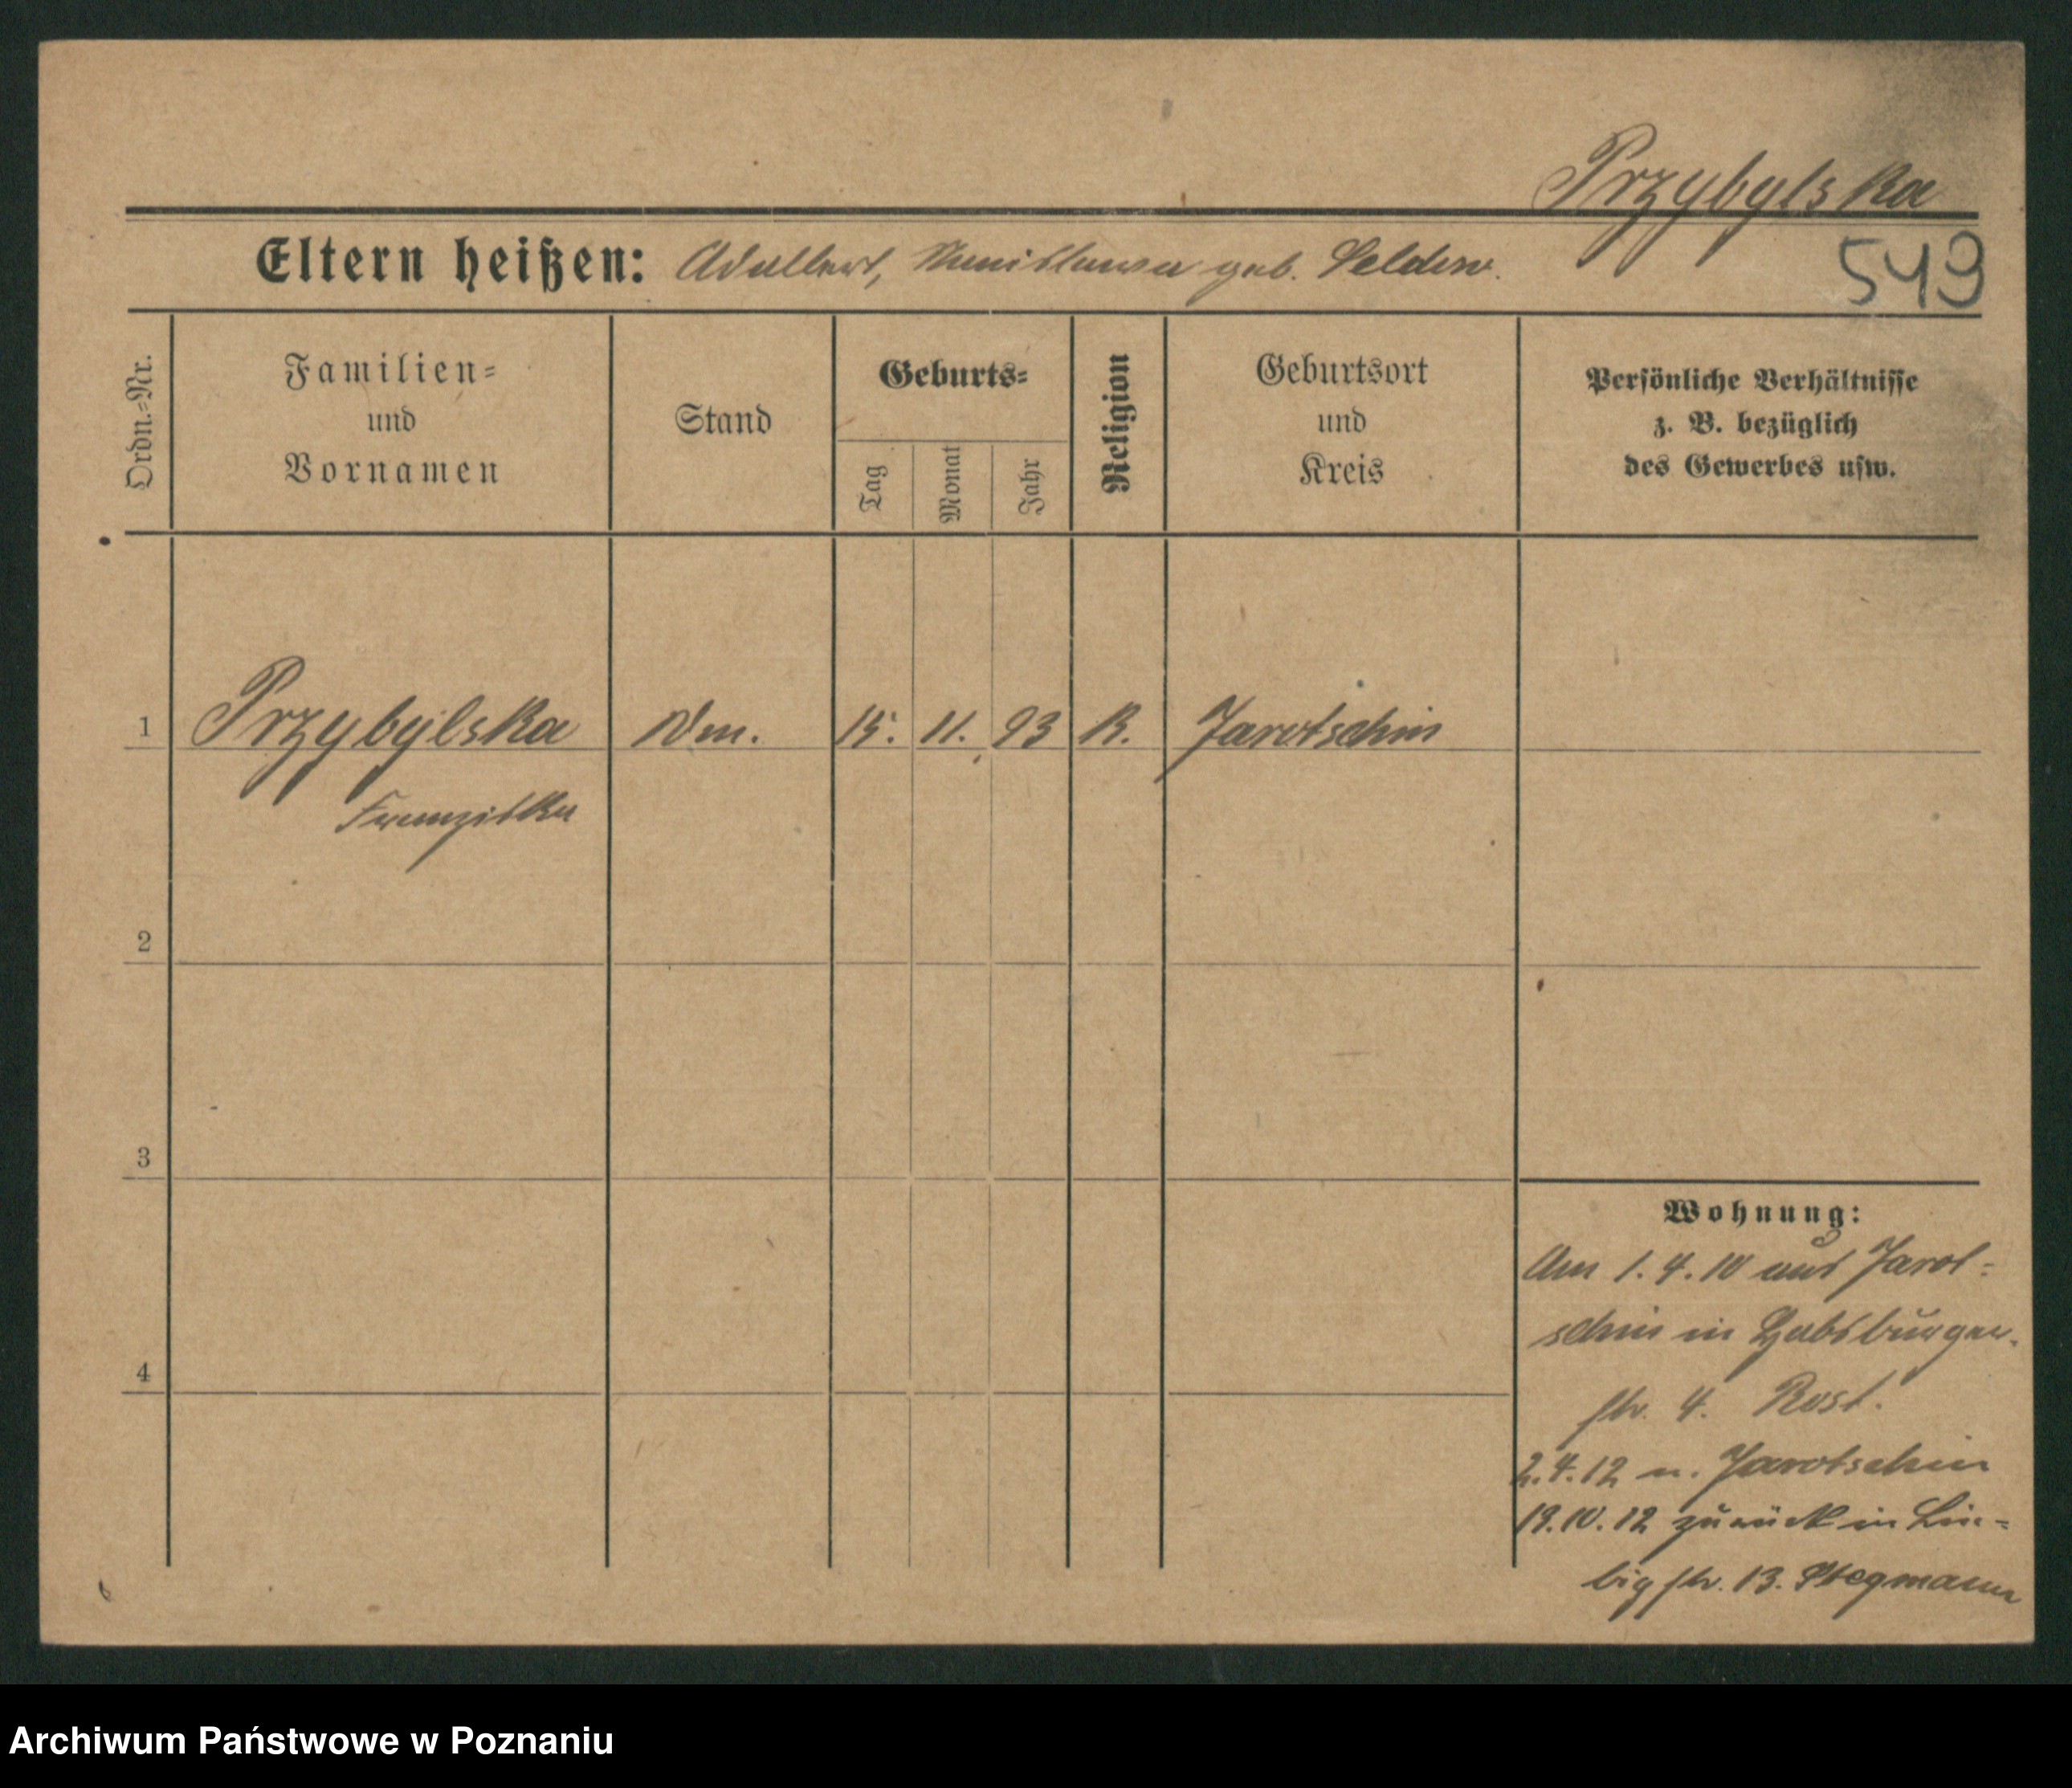 Przybylska
Eltern heißen: Adalbert, Stanislawa geb. Selder.
549
Ordn.-Nr.
Familien-
und
Vornamen
Stand
Geburts-
Tag
Monat
Jahr
Religion
Geburtsort
und
Kreis
Persönliche Verhältnisse
z. B. bezüglich
des Gewerbes usw.
1 Przybylska 15. 11. 93 K. Jarotschin
Franziska
2
3
4
Wohnung:
Am 1.4.10 aus Jarot-
schin in Habsburger-
str. 4. Rost.
2.4.12 n. Jarotschin
19.10.12 zurück in Lie-
bigstr. 13. Stegmann
Archiwum Państwowe w Poznaniu